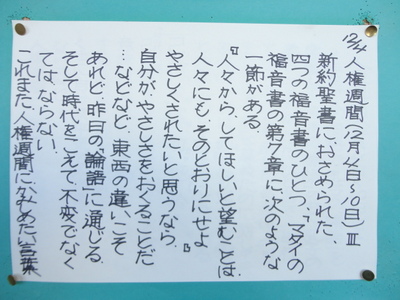 12/4 人権週間(12月4日~10日)Ⅲ
新約聖書に、おさめられた、
四つの福音書のひとつ、「マタイの
福音書の第7章に、次のような
一節がある。
『人々から、してほしいと望むことは、
人々にも、そのとおりにせよ』
やさしくされたいと思うなら、
自分が、やさしさをおくることだ
…などなど、東西の違いこそ
あれど、昨日の「論語」に通じる。
そして時代をこえて、不変でなく
ては、ならない。
これまた、人権週間に、かみしめたい言葉